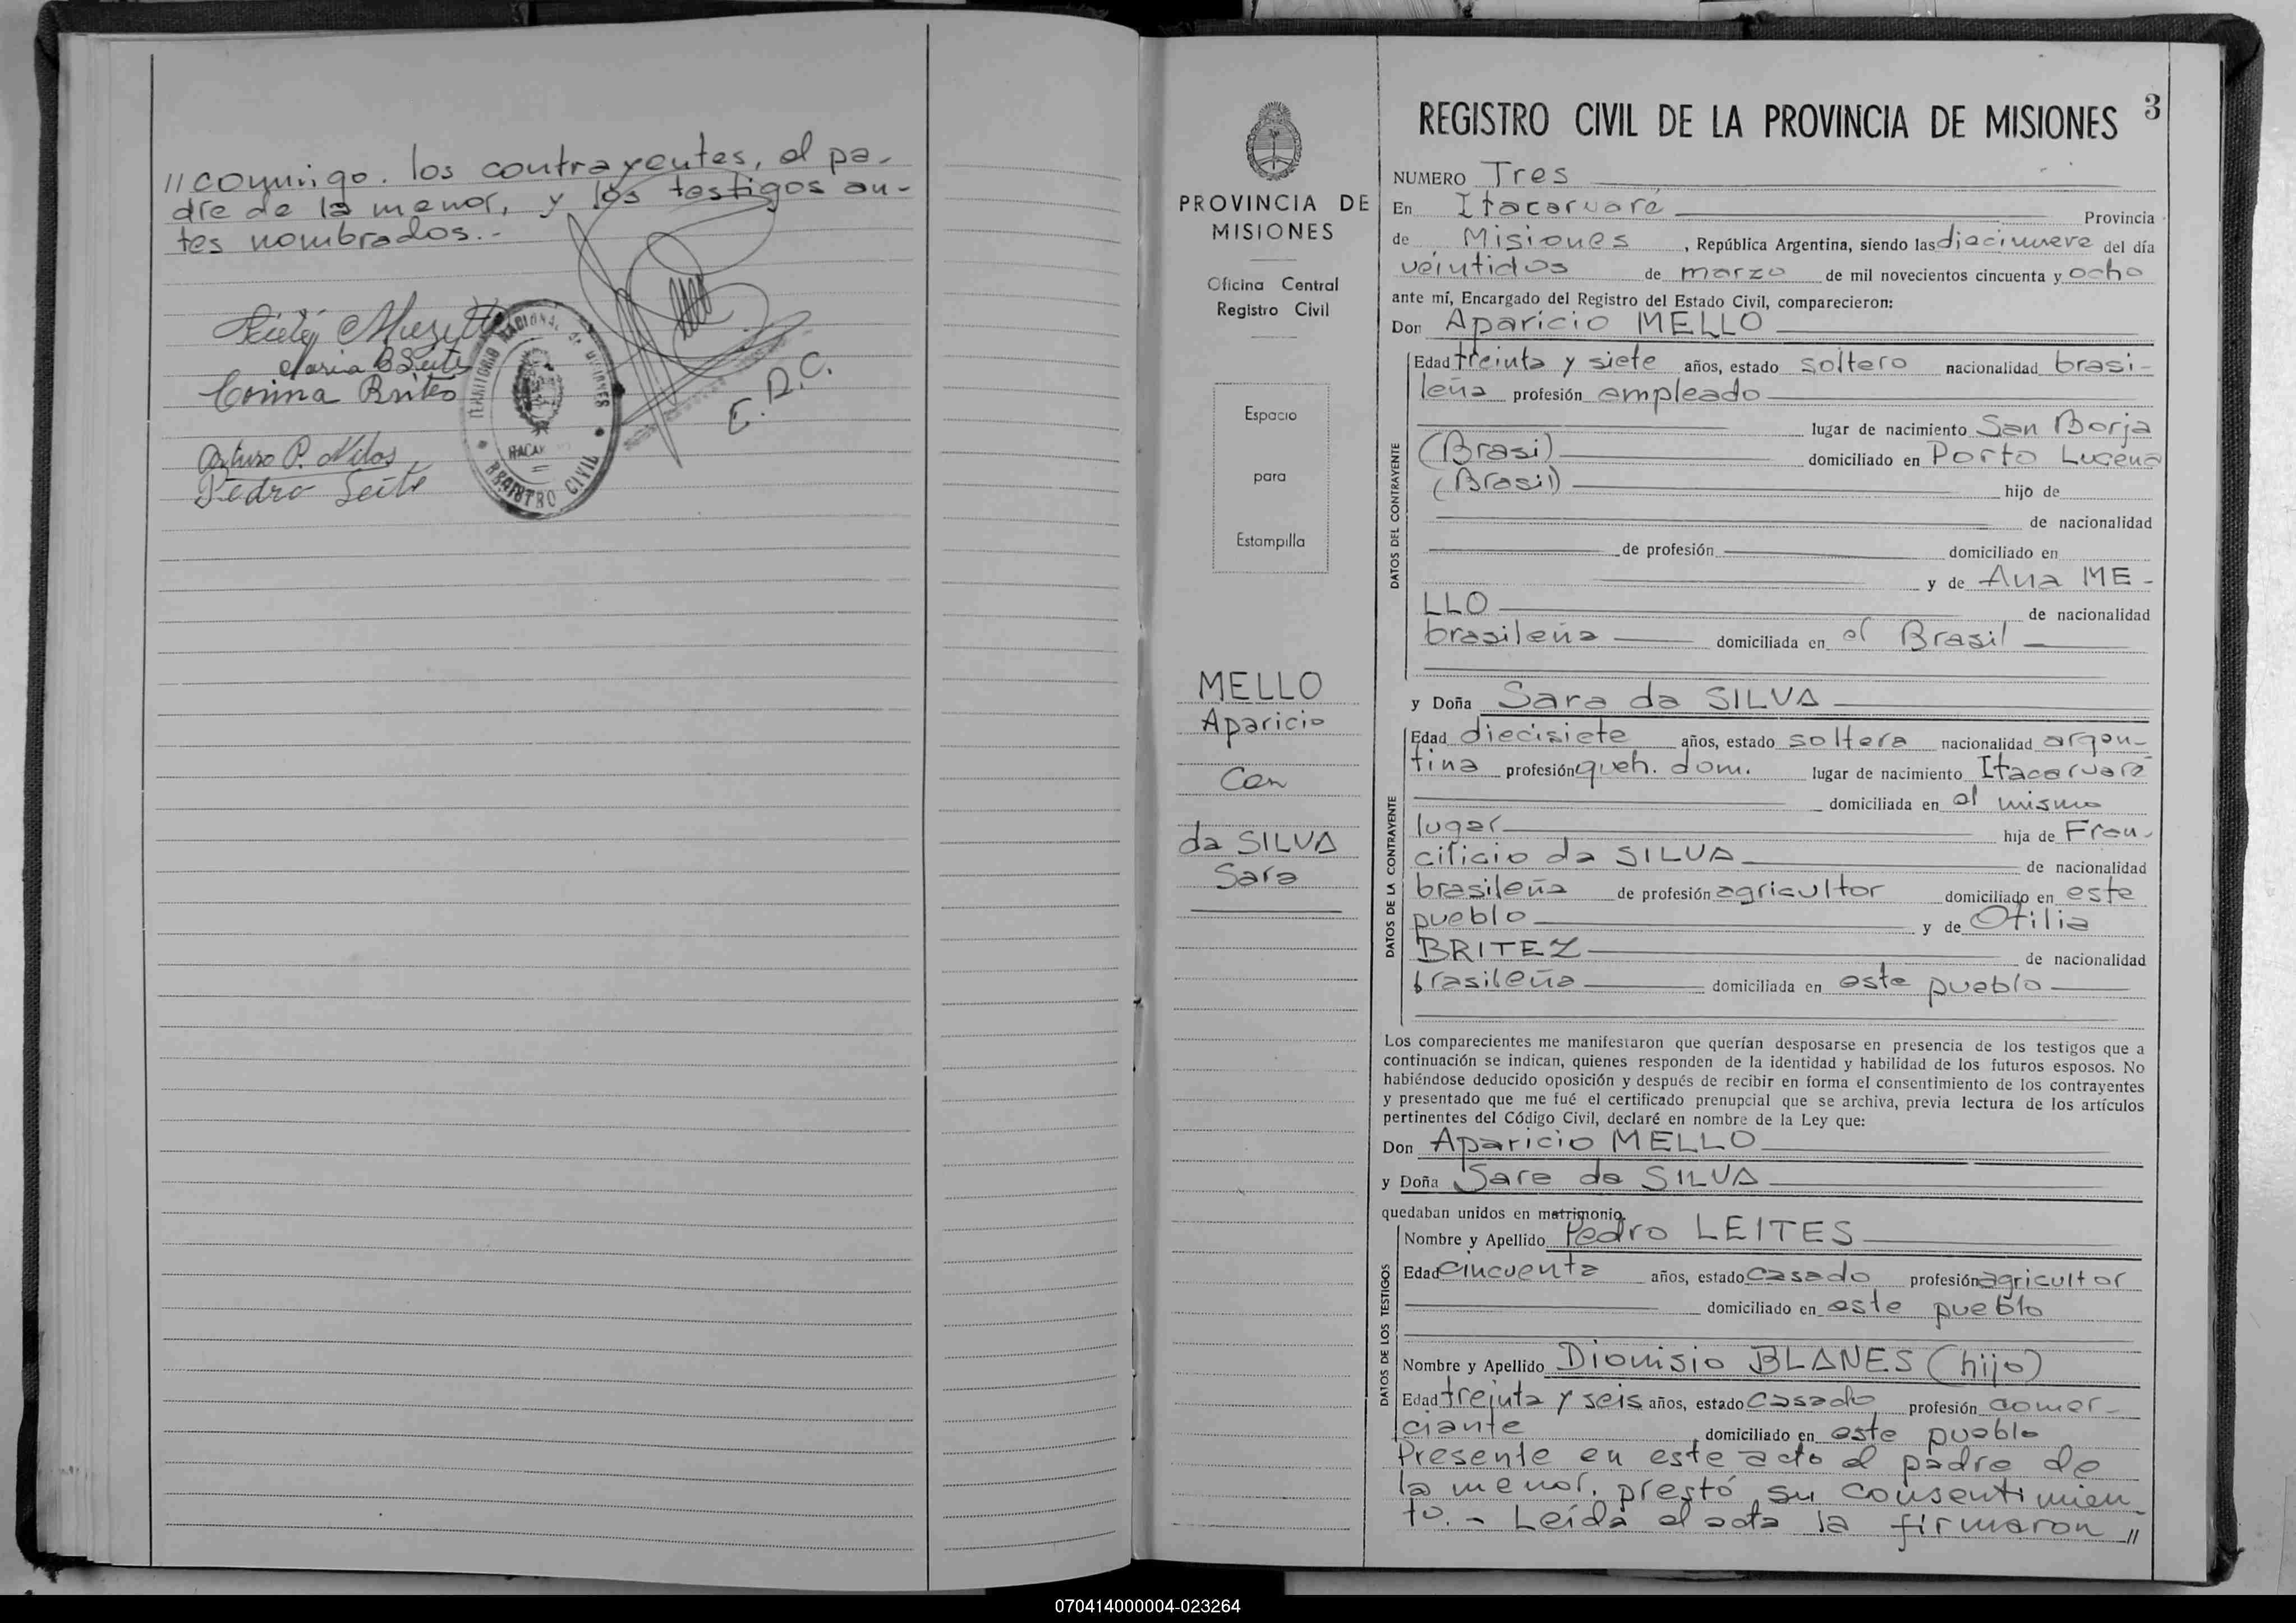 // conmigo. los contrayentes, el pa-
dre de la menor, y los testigos an-
tes nombrados.-
Corina Brites
E. R. C.
Pedro Leite
TERRITORIO NACIONAL DE MISIONES
REGISTRO CIVIL
PROVINCIA DE
MISIONES
Oficina Central
Registro Civil
Espacio
para
Estampilla
MELLO
Aparicio
Con
da SILVA
Sara
REGISTRO CIVIL DE LA PROVINCIA DE MISIONES 3
NUMERO Tres
En Itacaruaré Provincia
de Misiones, República Argentina, siendo las diecinueve del día
veintidos de marzo de mil novecientos cincuenta y ocho
ante mí, Encargado del Registro del Estado Civil, comparecieron:
Don Aparicio MELLO
DATOS DEL CONTRAYENTE
Edad treinta y siete años, estado soltero nacionalidad brasi-
leña profesión empleado
lugar de nacimiento San Borja
(Brasi) domiciliado en Porto Lucena
(Brasil) hijo de
de nacionalidad
de profesión domiciliado en
y de Ana ME-
LLO de nacionalidad
brasileña domiciliada en el Brasil
y Doña Sara da SILVA
DATOS DE LA CONTRAYENTE
Edad diecisiete años, estado soltera nacionalidad argen-
tina profesión queh. dom. lugar de nacimiento Itacaruaré
domiciliada en el mismo
lugar hija de Fran-
cilicio da SILVA de nacionalidad
brasileña de profesión agricultor domiciliado en este
pueblo y de Otilia
BRITEZ de nacionalidad
brasileña domiciliada en este pueblo
Los comparecientes me manifestaron que querían desposarse en presencia de los testigos que a
continuación se indican, quienes responden de la identidad y habilidad de los futuros esposos. No
habiéndose deducido oposición y después de recibir en forma el consentimiento de los contrayentes
y presentado que me fué el certificado prenupcial que se archiva, previa lectura de los artículos
pertinentes del Código Civil, declaré en nombre de la Ley que:
Don Aparicio MELLO
y Doña Sara da SILVA
quedaban unidos en matrimonio.
DATOS DE LOS TESTIGOS
Nombre y Apellido Pedro LEITES
Edad cincuenta años, estado casado profesión agricultor
domiciliado en este pueblo
Nombre y Apellido Dionisio BLANES (hijo)
Edad treinta y seis años, estado casado profesión comer-
ciante domiciliado en este pueblo
Presente en este acto el padre de
la menor, prestó su consentimien-
to.- Leída el acta la firmaron //
070414000004-023264